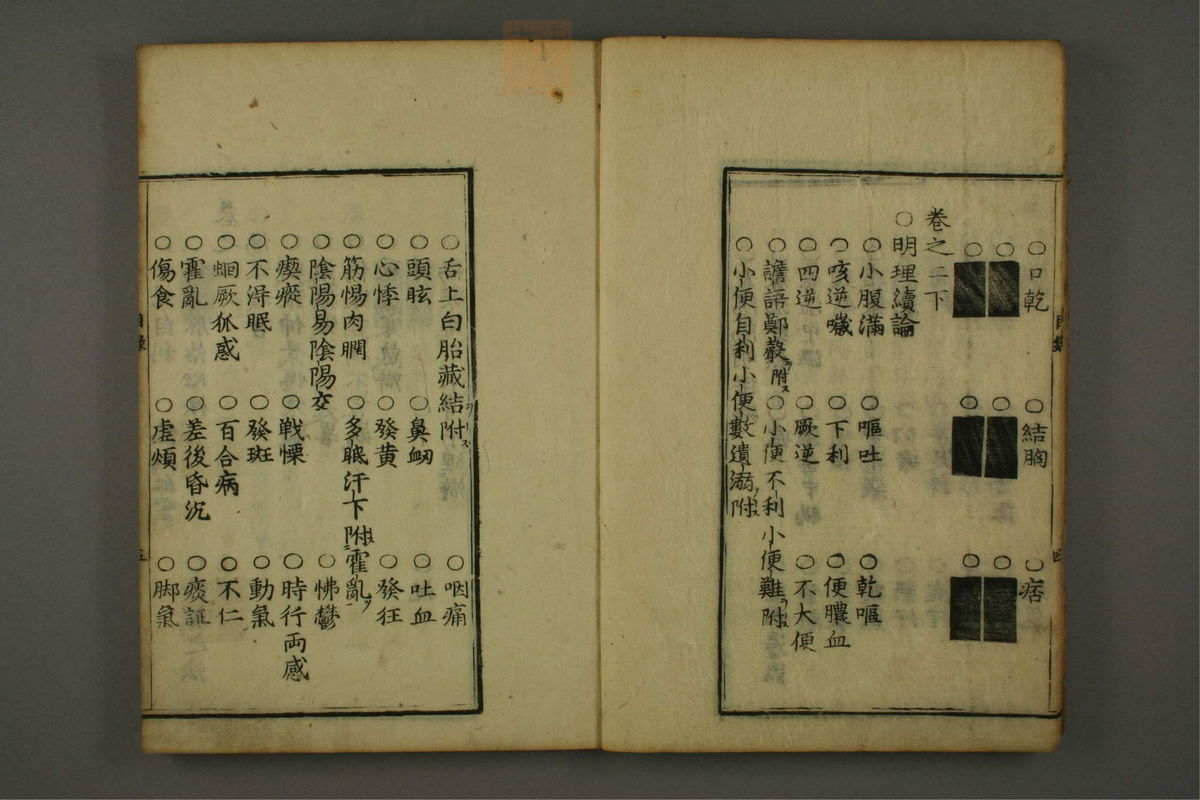 ○口乾 ○結胸 ○痞
○ ○ ○
○ ○ ○
卷之二下
○明理續論
○小腹滿 ○嘔吐 ○乾嘔
○咳逆噦 ○下利 ○便膿血
○四逆 ○厥逆 ○不大便
○譫語鄭聲附ス ○小便不利小便難附
○小便自利小便數遺溺附
目錄 四
○舌上白胎藏結附 ○咽痛
○頭眩 ○鼻衄 ○吐血
○心悸 ○發黃 ○發狂
○筋惕肉瞤 ○多眠汗下附霍亂
○陰陽易陰陽交 ○怫鬱
○瘈瘲 ○戦慄 ○時行両感
○不淂眠 ○發斑 ○動氣
○蛔厥狐惑 ○百合病 ○不仁
○霍亂 ○差後昏沉 ○痰証
○傷食 ○虛煩 ○脚氣
目錄 五